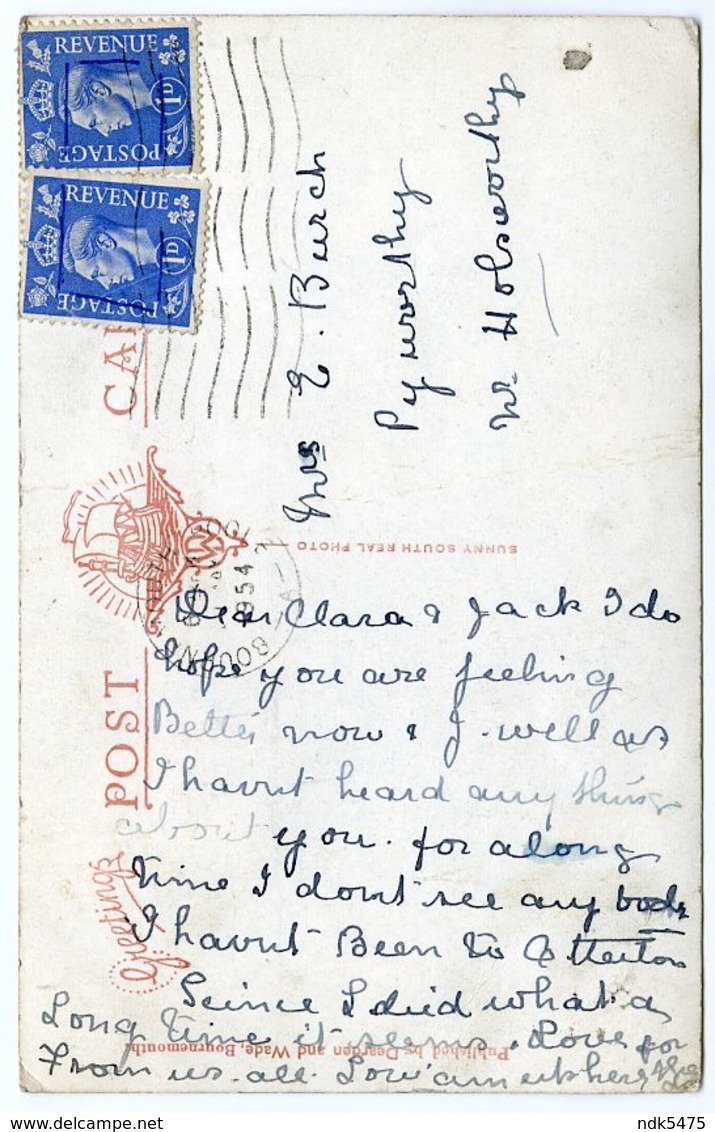 REVENUE
1D
POSTAGE
REVENUE
1D
POSTAGE
Greetings
POST CAR
SUNNY SOUTH REAL PHOTO
Published by Dearden and Wade, Bournemouth.
1954
Mrs E. Burch
Pyworthy
Nr Holsworthy
Dear Clara & Jack I do
hope you are feeling
Better now & J. well as
I havnt heard any thing
about you. for along
time I dont see any body
I havnt Been to Otterton
Seince I died what a
Long time it seems. Love for
From us. all.
ndk5475